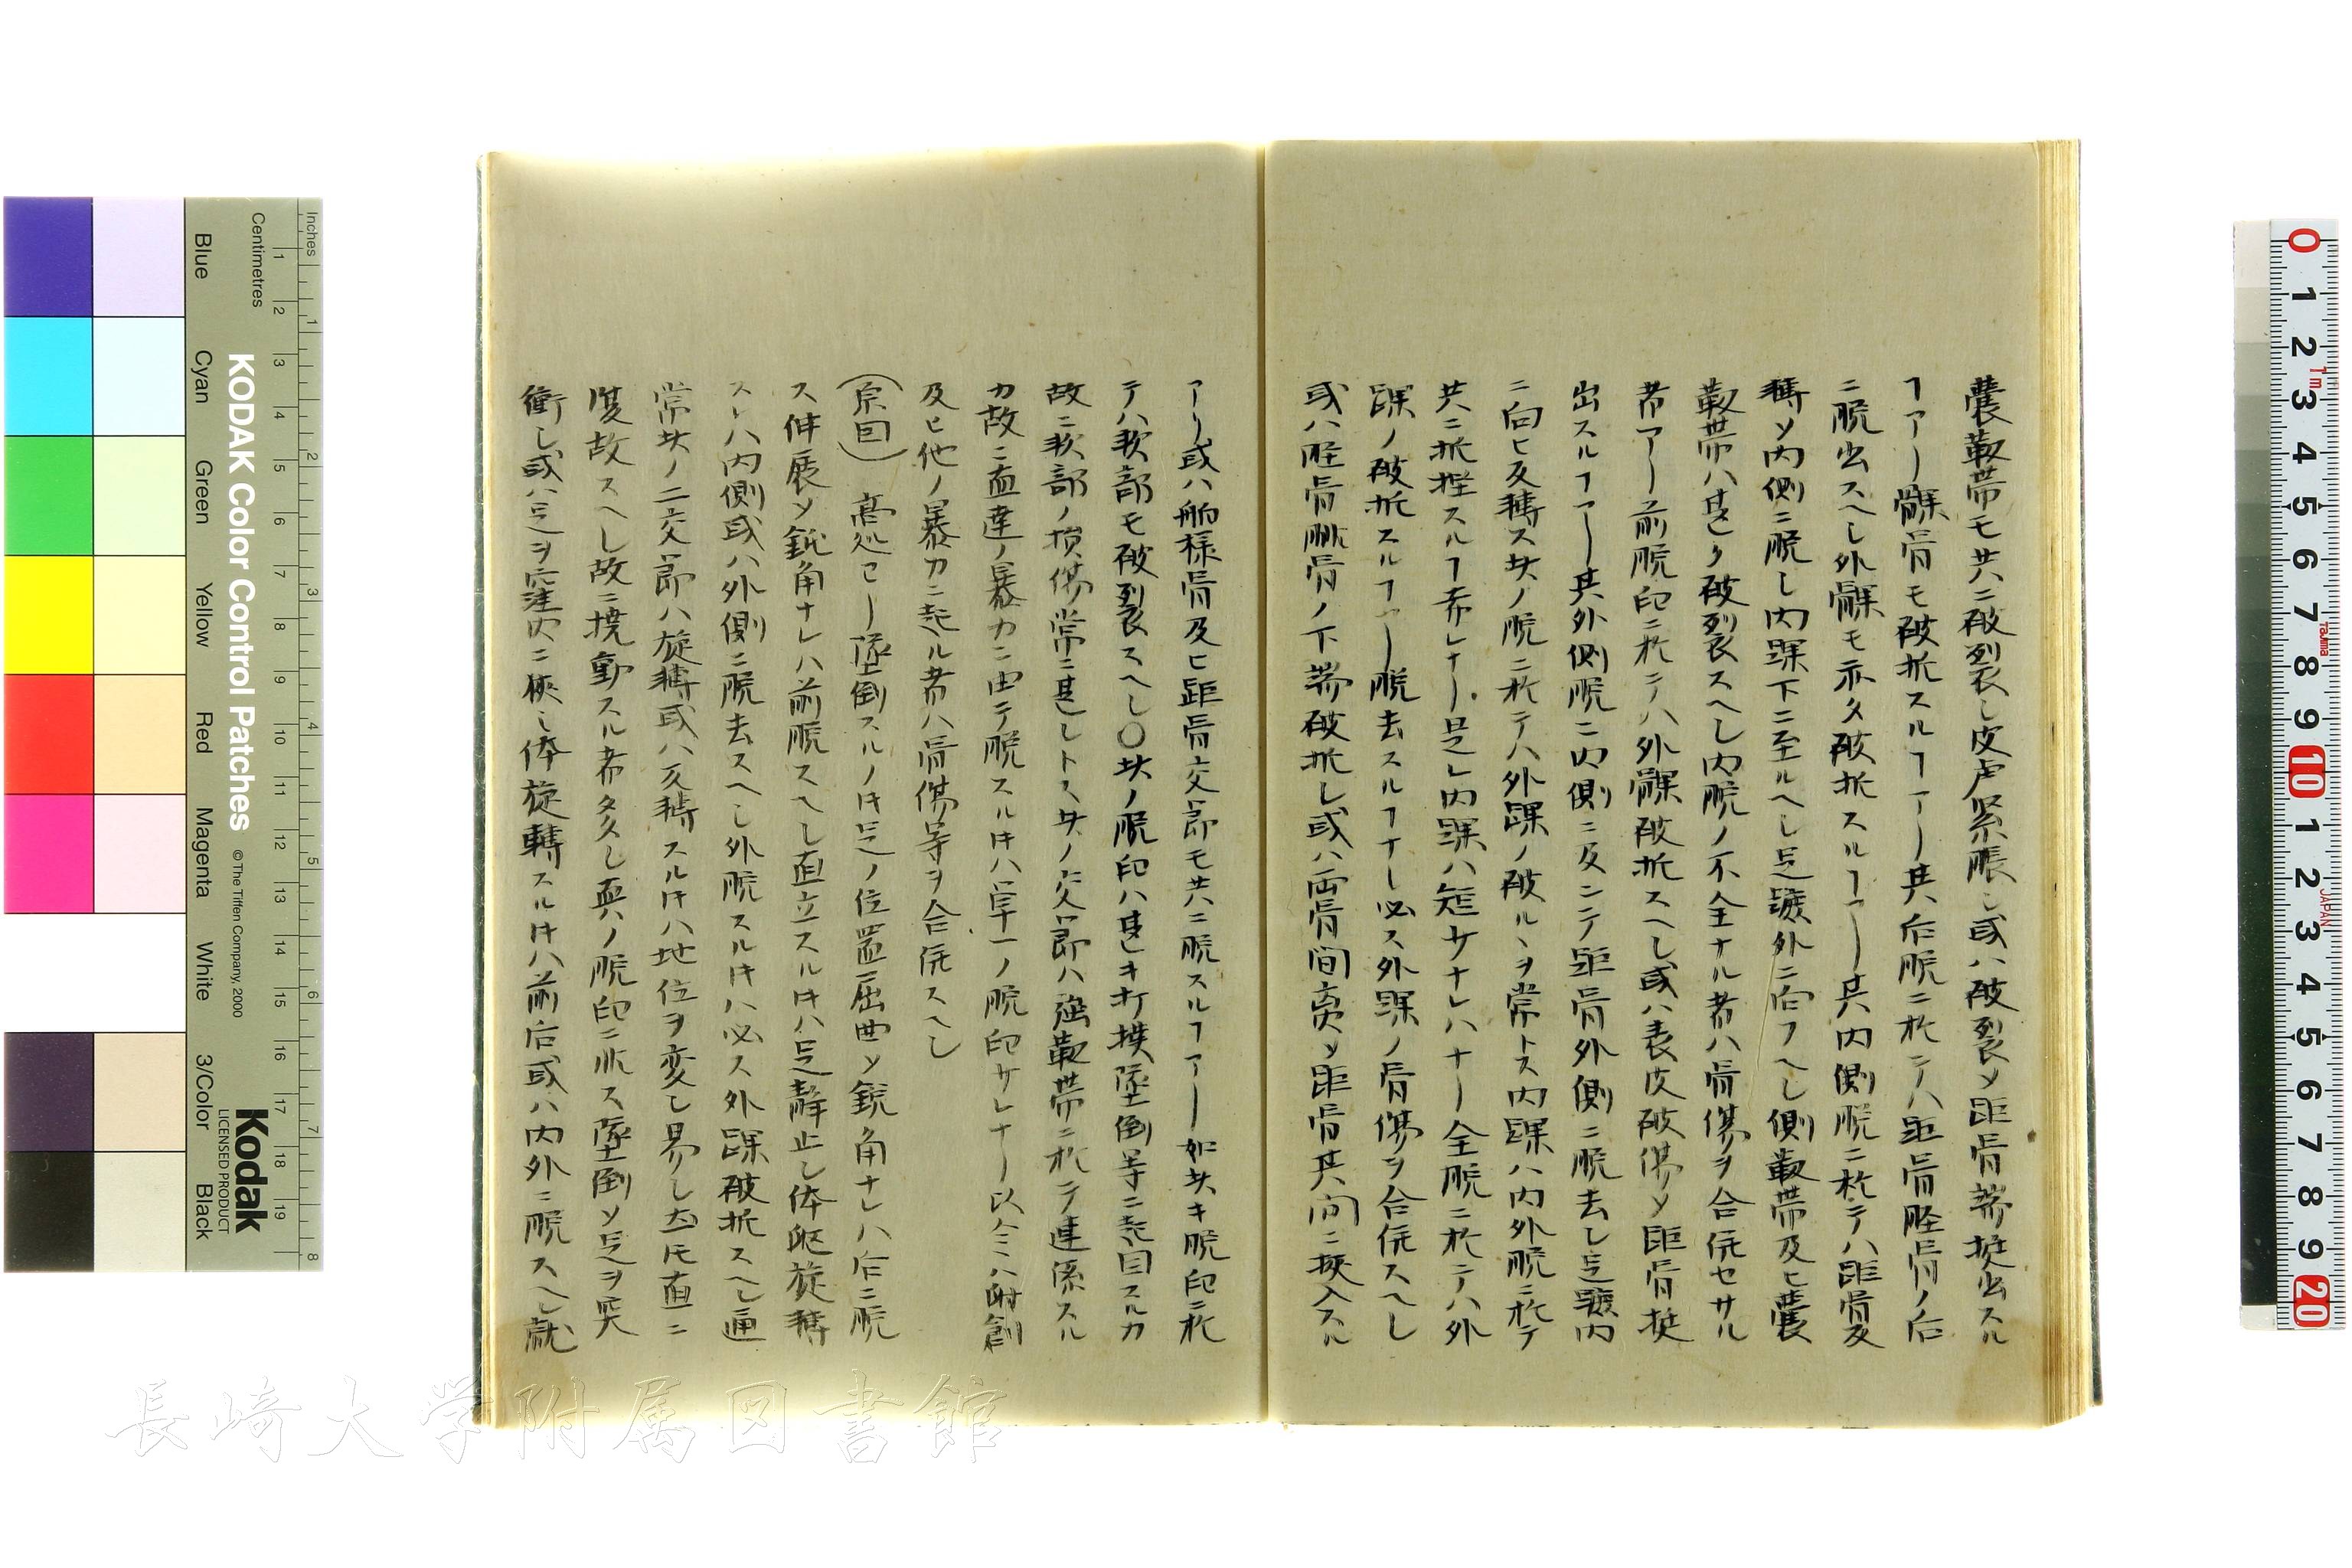 嚢靱帯モ共ニ破裂シ皮膚緊脹シ或ハ破裂乄距骨端挺出スル
ヿアリ髁骨モ破折スルヿアリ其后脱ニ於テハ距骨脛骨ノ后
ニ脱出スヘシ外髁モ亦タ破折スルヿアリ其内側脱ニ於テハ距骨反
轉乄内側ニ脱シ内踝下ニ至ルヘシ足蹠外ニ向フヘシ側靱帯及ヒ嚢
靱帯ハ甚タ破裂スヘシ内脱ノ不全ナル者ハ骨傷ヲ合併セサル
者アリ前脱印ニ於テハ外髁破折スヘシ或ハ表皮破傷乄距骨挺
出スルヿアリ其外側脱ニ内側ニ反シテ距骨外側ニ脱去シ足蹠内
ニ向ヒ反轉ス共ノ脱ニ於テハ外踝ノ破ルヽヲ常トス内踝ハ内外脱ニ於テ
共ニ折挫スルヿ希レナリ是レ内踝ハ短サナレハナリ全脱ニ於テハ外
踝ノ破折スルヿアリ脱去スルヿナシ必ス外踝ノ骨傷ヲ合併スヘシ
或ハ脛骨腓骨ノ下端破折シ或ハ両骨間離乄距骨其間ニ挾入スル
アリ或ハ舶様骨及ヒ距骨交節モ共ニ脱スルヿアリ如此キ脱印ニ於
テハ軟部モ破裂スヘシ〇此ノ脱印ハ甚キ打撲墜倒等ニ起因スルカ
故ニ軟部ノ損傷常ニ甚シトス此ノ交節ハ強靱帯ニ於テ連係スル
カ故ニ直達ノ暴力ニ由テ脱スルキハ単一ノ脱印サレナリ以
及ヒ他ノ暴力ニ起ル者ハ骨傷等ヲ合併スヘシ
(原因) 高処ヨリ墜倒スルノキ足ノ位置屈曲乄鋭角ナレハ后ニ脱
ス伸展乄鈍角ナレハ前脱スヘシ直立スルキハ足静止シ体旋轉
スレハ内側或ハ外側ニ脱去スヘシ外脱スルキハ必ス外踝破折スヘシ通
常此ノ二交節ハ旋轉或ハ反轉スルキハ地位ヲ変シ易シ然𪜈直ニ
復故スヘシ故ニ撓動スル者多シ真ノ脱印ニ非ス墜倒乄足ヲ突
衝シ或ハ足ヲ窪内ニ挾シ体旋轉スルキハ前后或ハ内外ニ脱スヘシ
KODAK Color Control Patches
© The Tiffen Company, 2000
Kodak
LICENSED PRODUCT
Inches
Centimetres
Blue
Cyan
Green
Yellow
Red
Magenta
White
3/Color
Black
長崎大学附属図書館